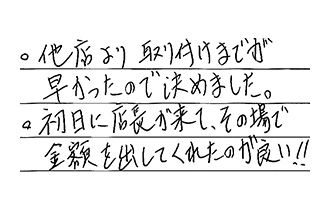 ○他店より取り付けまでが
早かったので決めました。
○初日に店長が来て、その場で
金額を出してくれたのが良い!!